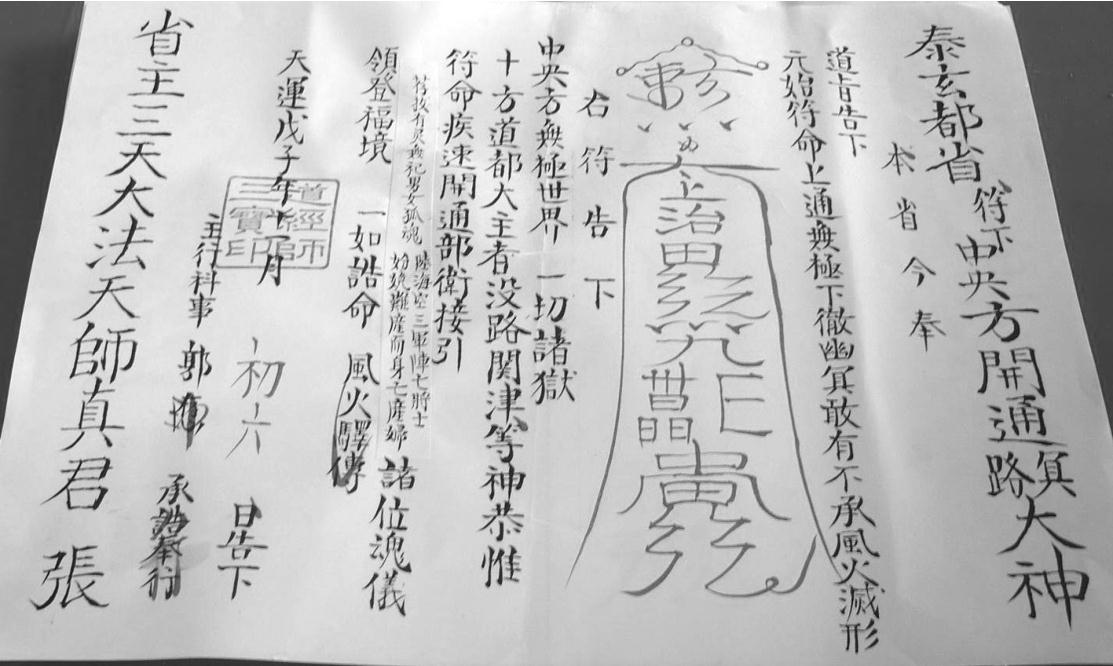 泰玄都省 符下 中央方開通冥路大神
本省今奉
道旨告下
元始符命上通無極下徹幽冥敢有不承風火滅形
右符告下
中央方無極世界一切諸獄
十方道都大主者没路関津等神恭惟
符命疾速開通部衛接引
陸海空三軍陣亡將士
妢娩難產而身亡產婦
領登福境 諸位魂儀
一如誥命 風火驛傳
天運戊子年 月 初六 日告下
道經師三寶印
主行科事 郭 承誥奉行
省主三天大法天師真君 張